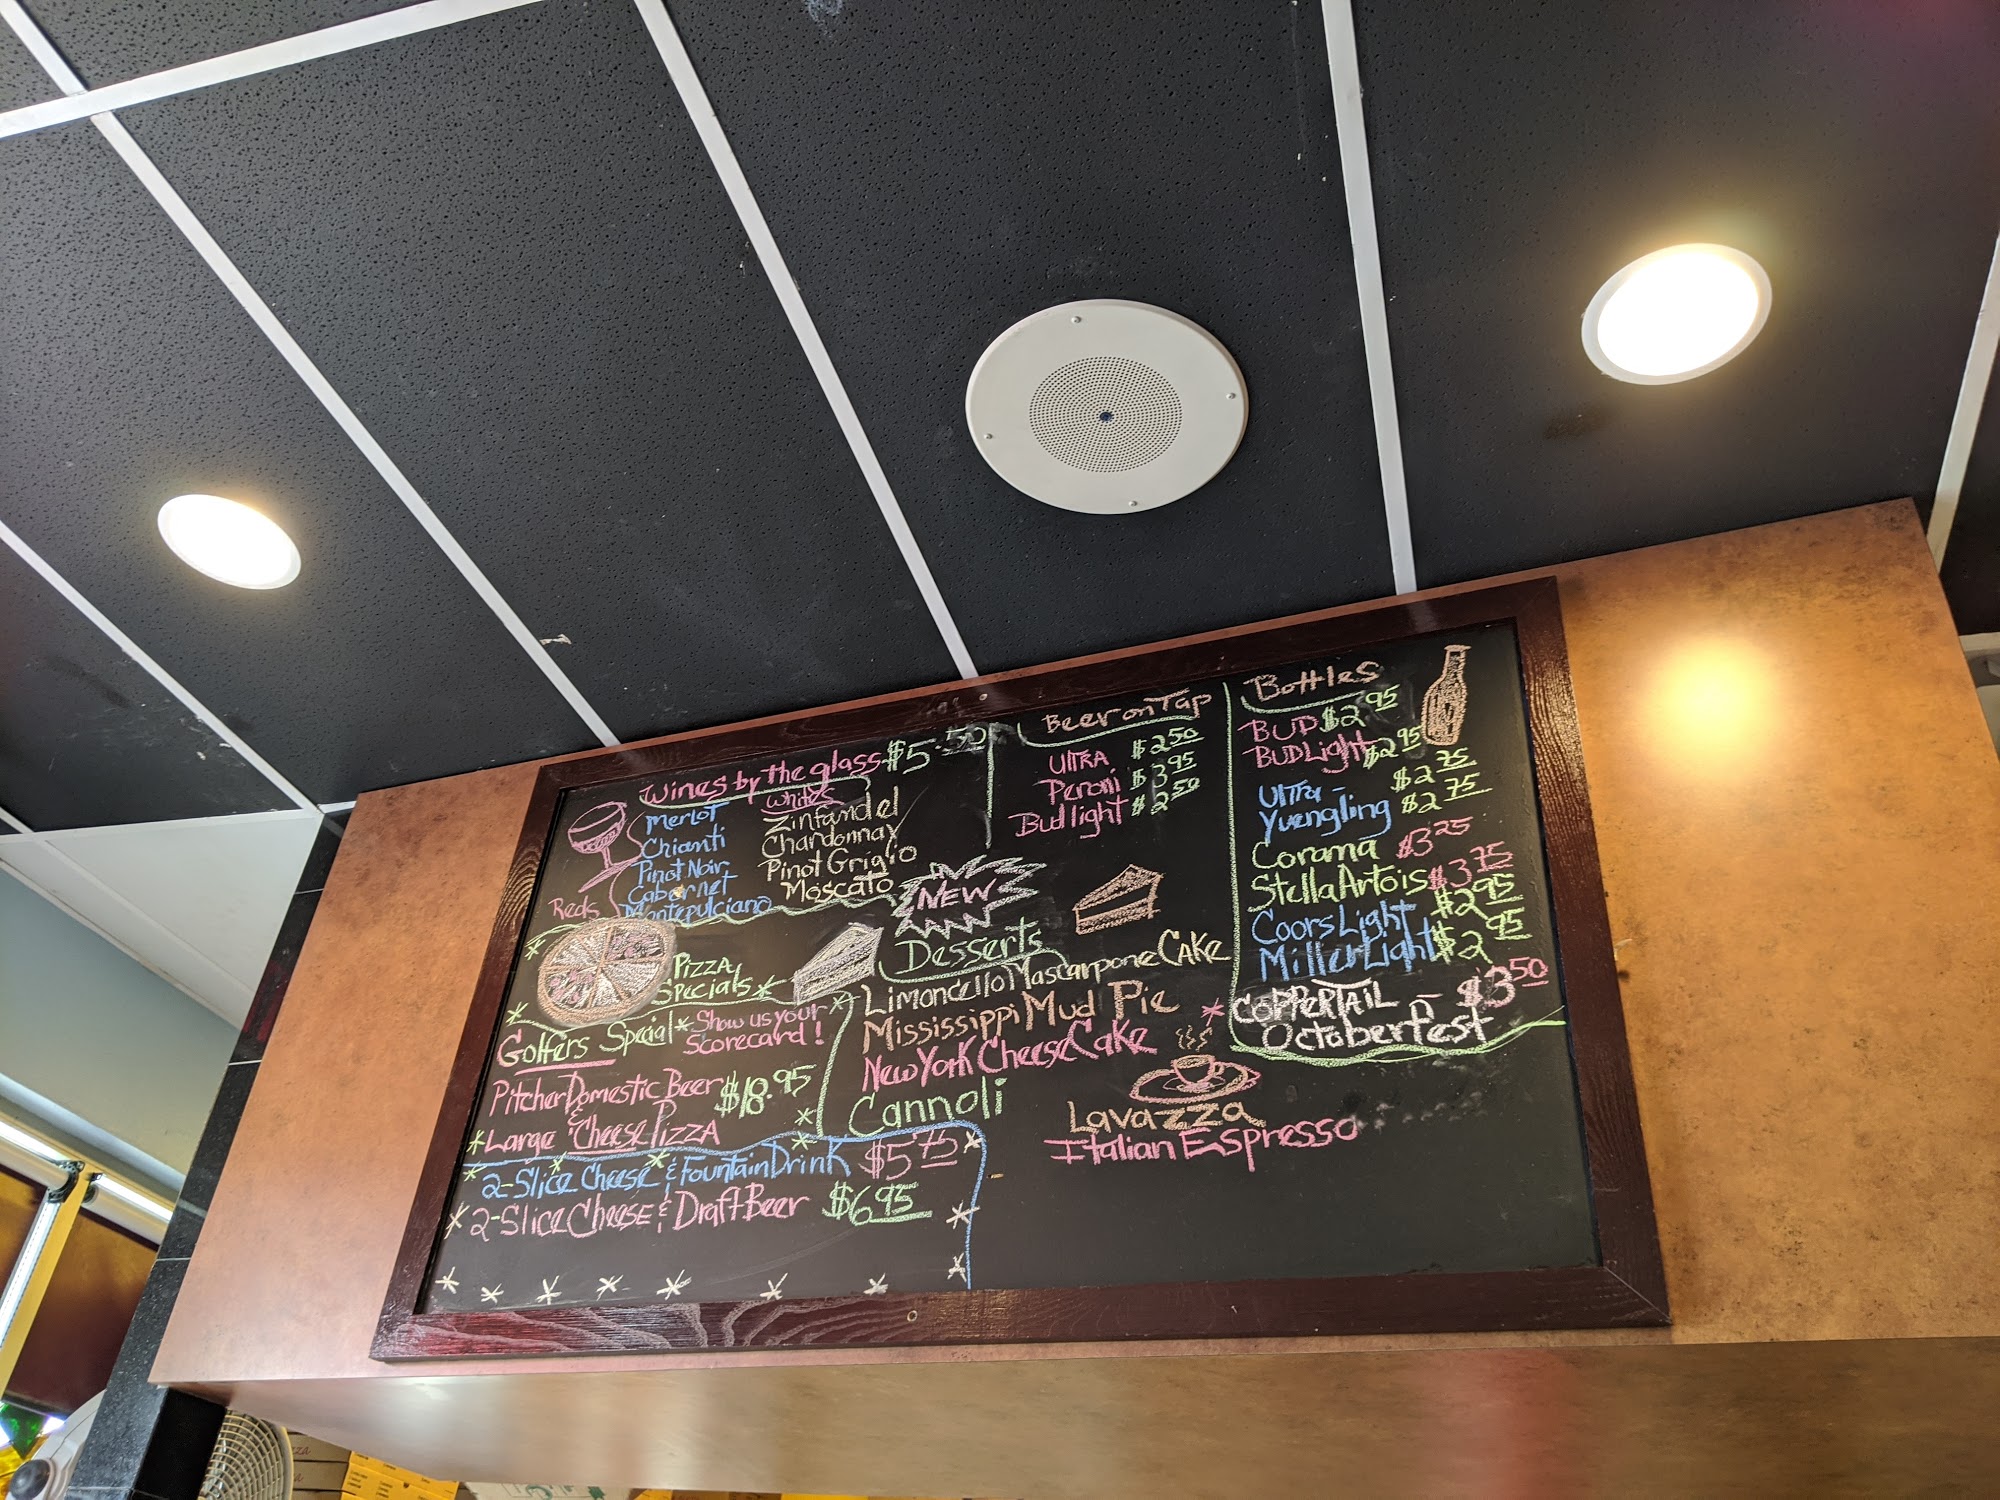 Wines by the glass $5.50
Whites
Merlot
Chianti
Pinot Noir
Cabernet
Montepulciano
Reds
Zinfandel
Chardonnay
Pinot Griglio
Moscato
Beer on Tap
Ultra $2.50
Peroni $3.95
Bud light $2.50
Bottles
BUD $2.95
BUD Light $2.95
Ultra - $2.75
Yuengling $2.75
Corama $3.25
Stella Artois $3.75
Coors Light $2.95
Miller Light $2.95
COPPERTAIL - $3.50
Octoberfest
NEW
Desserts
Limoncello Mascarpone Cake
Mississippi Mud Pie
New York Cheese Cake
Cannoli
Lavazza
Italian Espresso
Pizza
Specials
Golfers Special * Show us your
Scorecard!
Pitcher Domestic Beer $18.95
&
* Large Cheese Pizza
2-Slice Cheese & Fountain Drink $5.75
2-Slice Cheese & Draft Beer $6.95